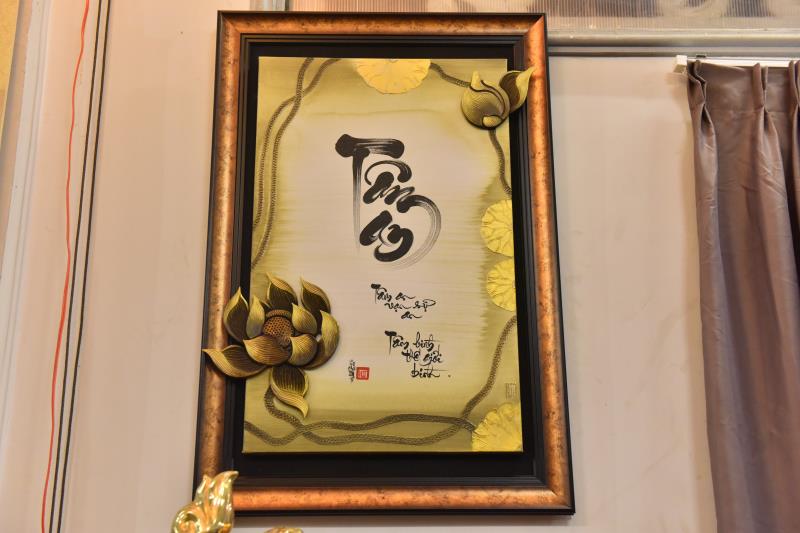 Tâm
an
Tâm an
vạn sự
an
Tâm bình
thế giới
bình.